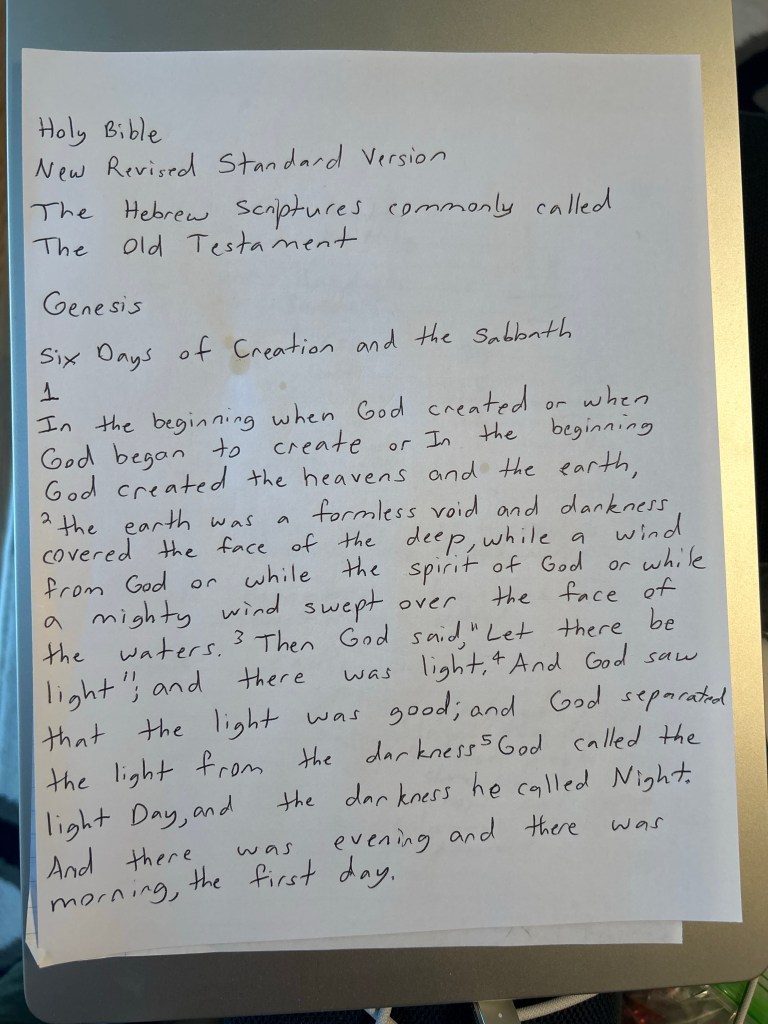 Holy Bible
New Revised Standard Version
The Hebrew Scriptures commonly called
The Old Testament
Genesis
Six Days of Creation and the Sabbath
1
In the beginning when God created or when
God began to create or In the beginning
God created the heavens and the earth,
2 the earth was a formless void and darkness
covered the face of the deep, while a wind
from God or while the spirit of God or while
a mighty wind swept over the face of
the waters. 3 Then God said, "Let there be
light"; and there was light. 4 And God saw
that the light was good; and God separated
the light from the darkness 5 God called the
light Day, and the darkness he called Night.
And there was evening and there was
morning, the first day.